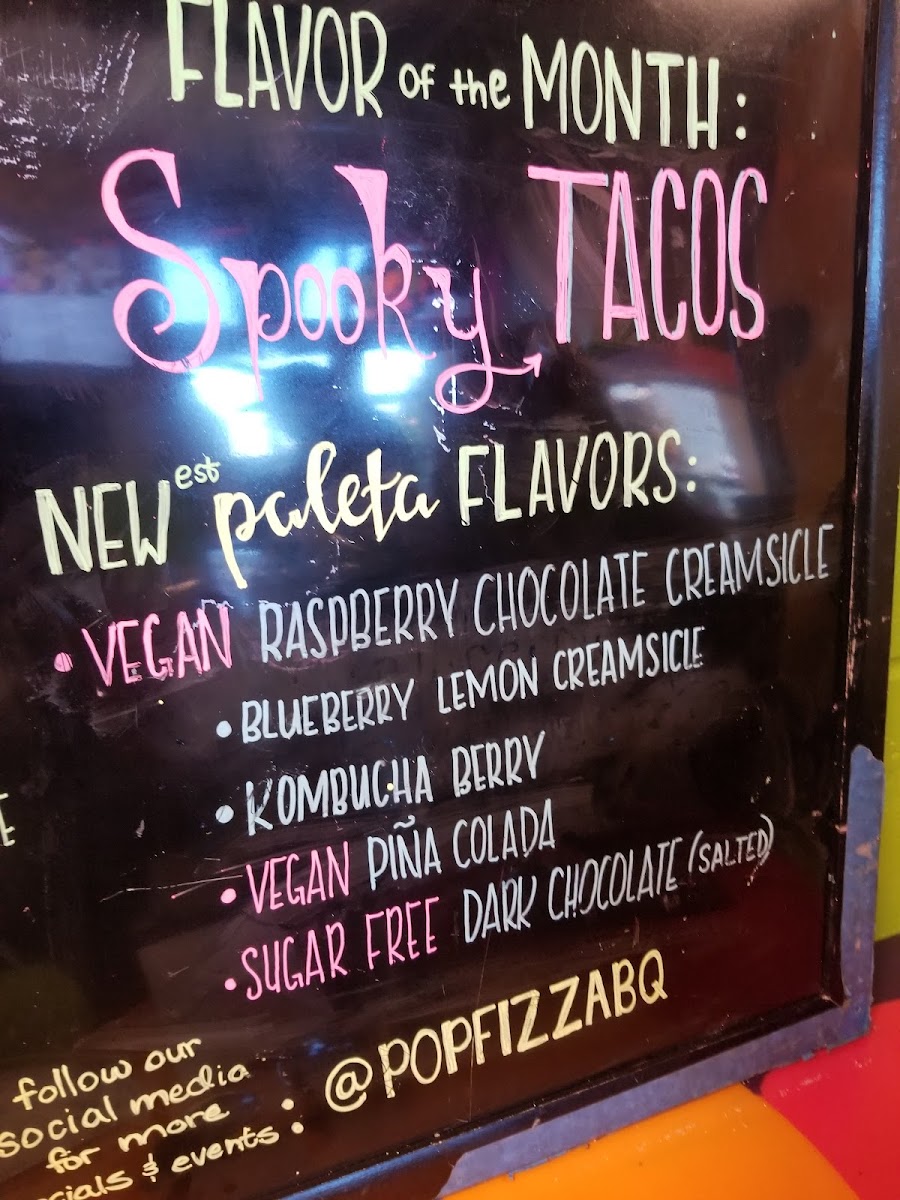 FLAVOR OF the MONTH:
Spooky TACOS
NEWest paleta FLAVORS:
• VEGAN RASPBERRY CHOCOLATE CREAMSICLE
• BLUEBERRY LEMON CREAMSICLE
• KOMBUCHA BERRY
• VEGAN PIÑA COLADA
• SUGAR FREE DARK CHOCOLATE (SALTED)
follow our
social media
for more
& events: @POPFIZZABQ